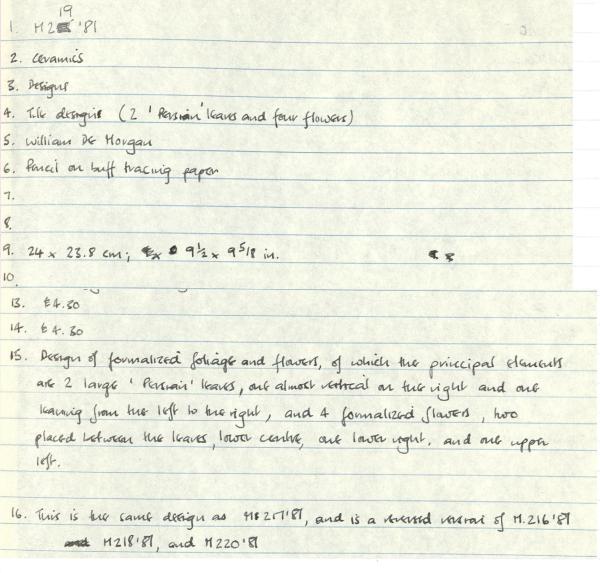 19
1. M2 '81
2. Ceramics
3. Designs
4. Tile designs (2 'Persian' leaves and four flowers)
5. William De Morgan
6. Pencil on buff tracing paper
7.
8.
9. 24 x 23.8 cm; 9 1/2 x 9 5/8 in.
10.
13. £4.30
14. £4.30
15. Design of formalized foliage and flowers, of which the principal elements
are 2 large 'Persian' leaves, one almost vertical on the right and one
leaning from the left to the right, and 4 formalized flowers, two
placed between the leaves, lower centre, one lower right, and one upper
left.
16. This is the same design as M217'81, and is a reversed version of M.216'81
M218'81, and M220'81